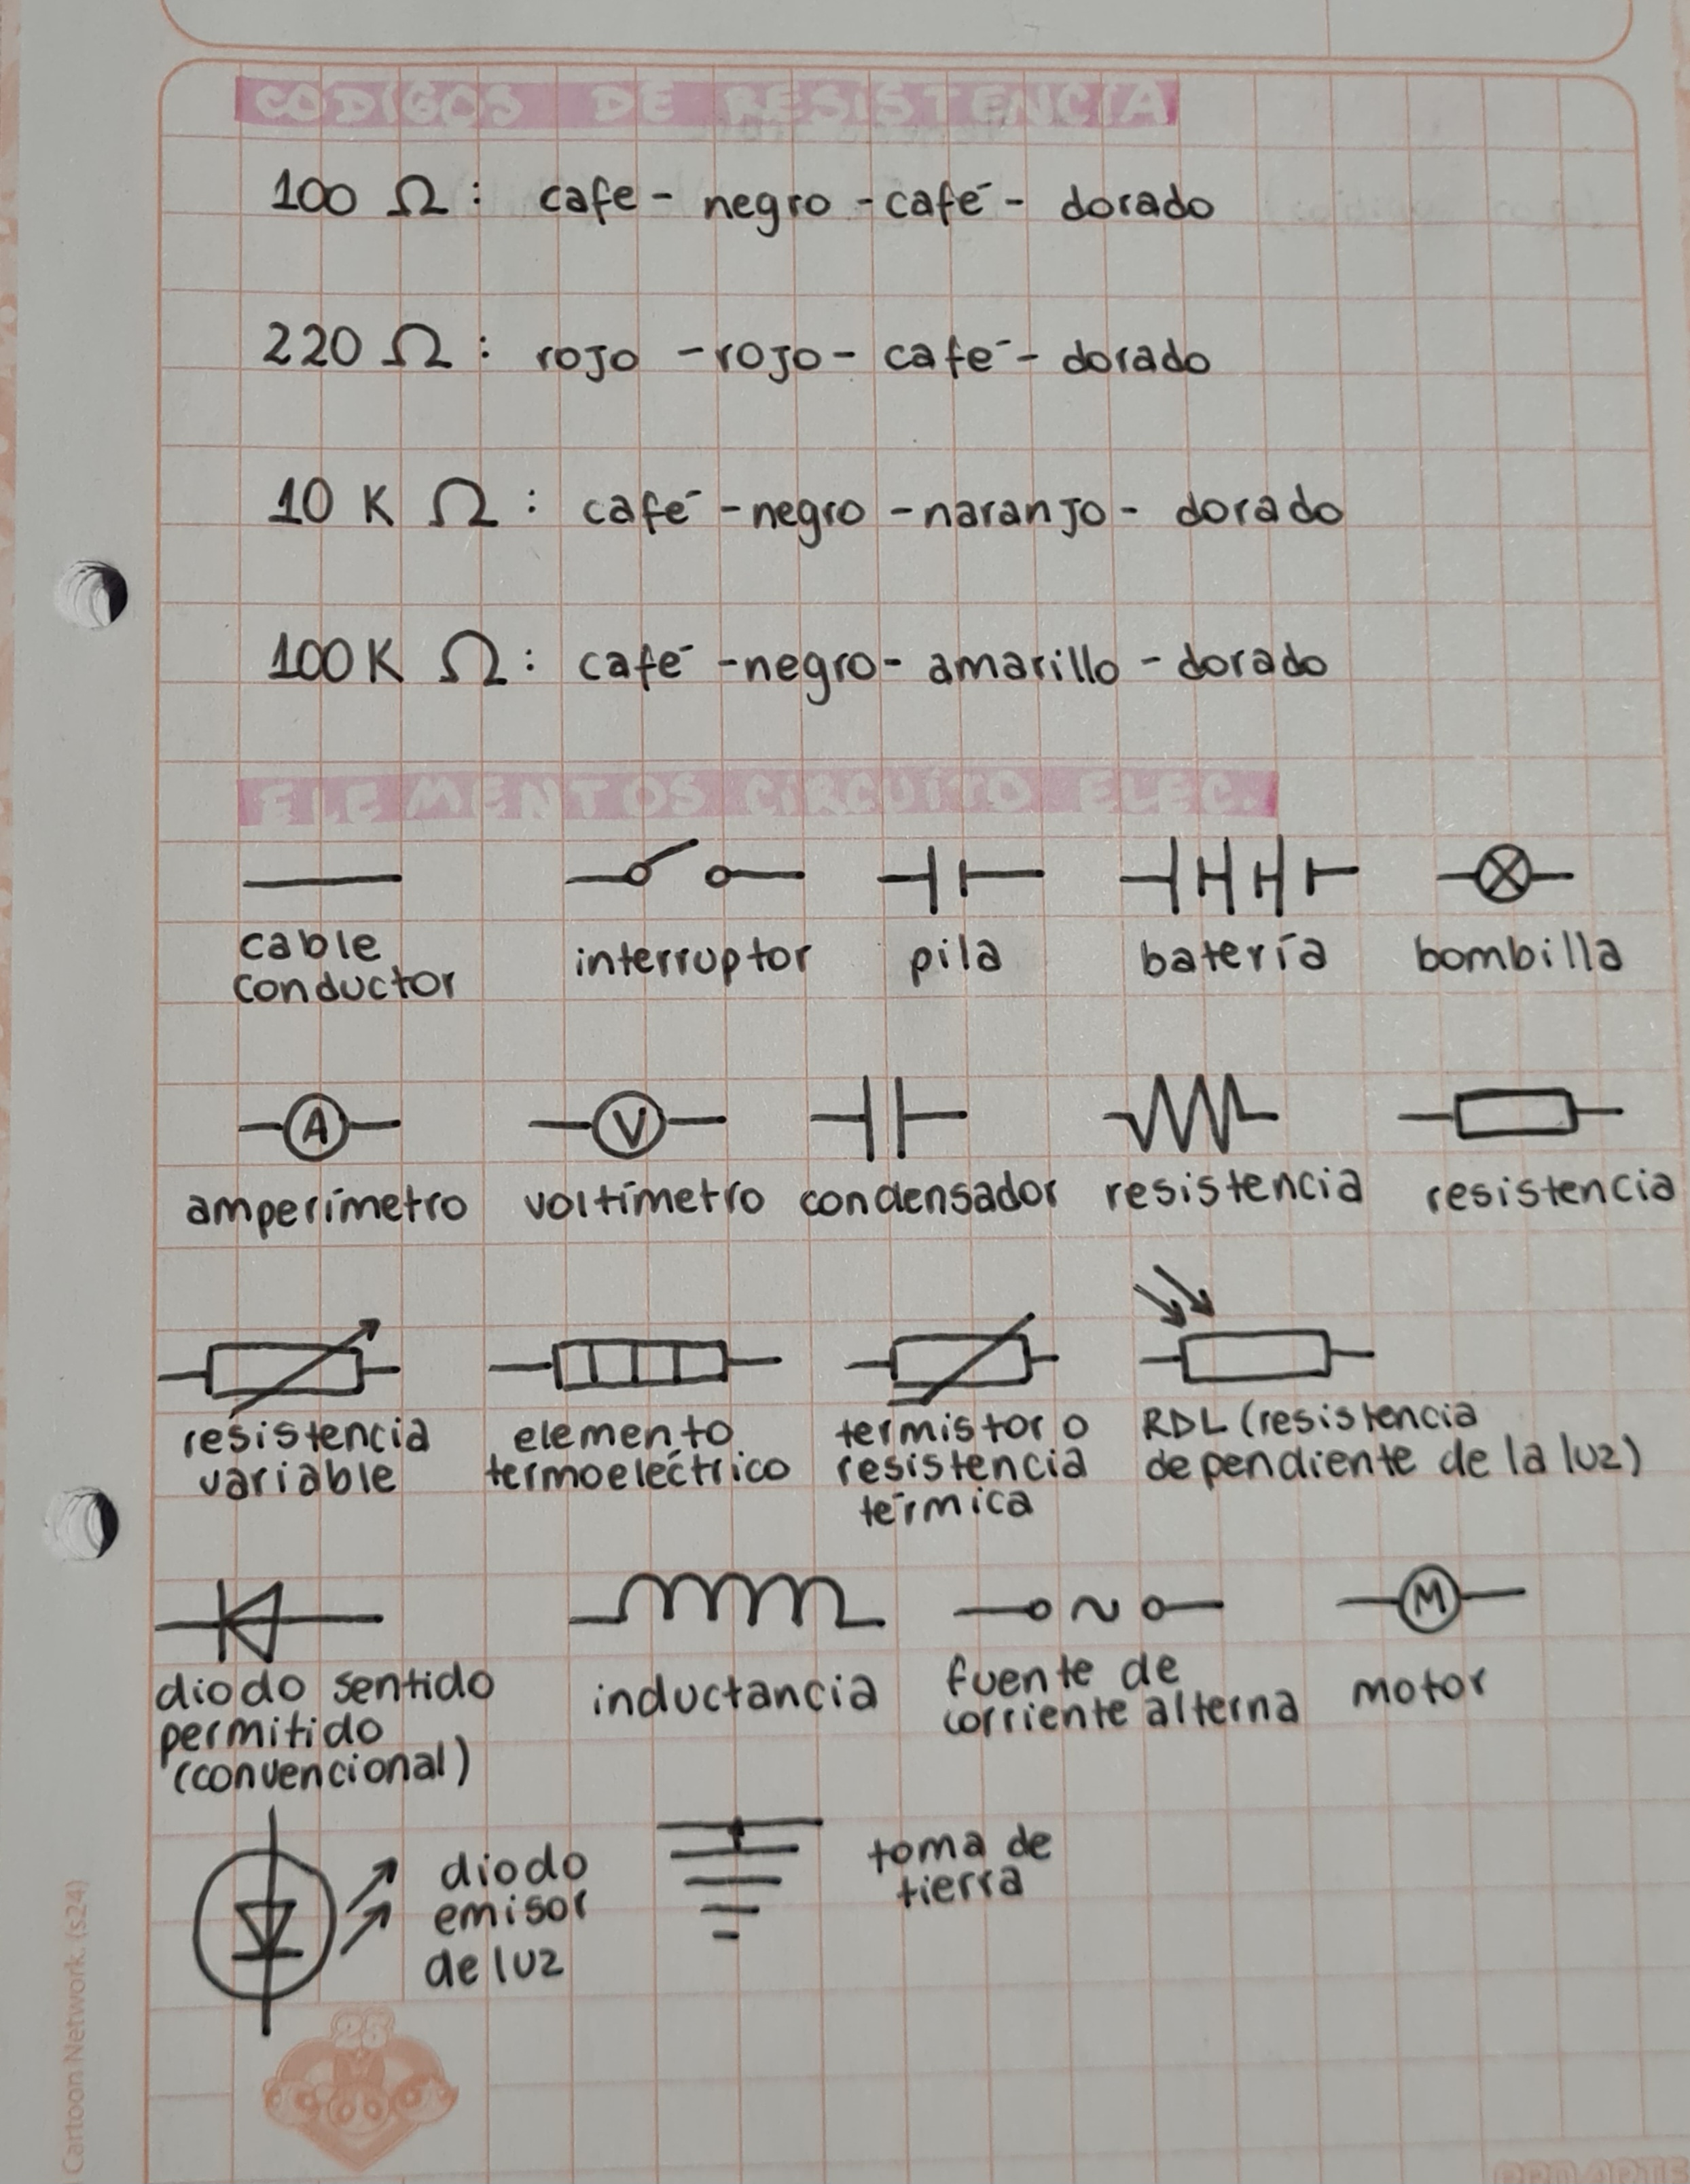 CODIGOS DE RESISTENCIA
100 Ω : cafe - negro - café - dorado
220 Ω : rojo - rojo - café - dorado
10 K Ω : café - negro - naranjo - dorado
100K Ω : café - negro - amarillo - dorado
ELEMENTOS CIRCUITO ELEC.
cable
conductor
interruptor
pila
batería
bombilla
A
amperímetro
V
voltímetro
condensador
resistencia
resistencia
resistencia
variable
elemento
termoeléctrico
termistor o
resistencia
térmica
RDL (resistencia
dependiente de la luz)
diodo sentido
permitido
(convencional)
inductancia
fuente de
corriente alterna
M
motor
diodo
emisor
de luz
toma de
tierra
25
Cartoon Network. (s24)